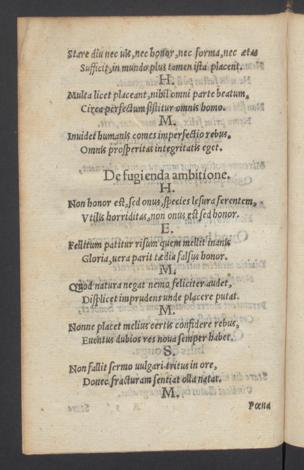 Stare diu nec uis, nec honor, nec forma, nec ætas
Sufficit, in mundo plus tamen ista placent.
H.
Multa licet placeant, nihil omni parte beatum,
Circa perfectum sistitur omnis homo.
M.
Inuidet humanis comes imperfectio rebus,
Omnis prosperitas integritatis eget.
De fugienda ambitione.
H.
Non honor est, sed onus, species lesura ferentem,
Vtilis horriditas, non onus est sed honor.
E.
Fellitum patitur risum quem mellit inanis
Gloria, uera parit tædia falsus honor.
M.
Quod natura negat nemo feliciter audet,
Displicet imprudens unde placere putat.
M.
Nonne placet melius certis confidere rebus,
Euentus dubios res noua semper habet.
S.
Non fallit sermo uulgari tritus in ore,
Donec fracturam sentiat olla natat.
M.
Pœna